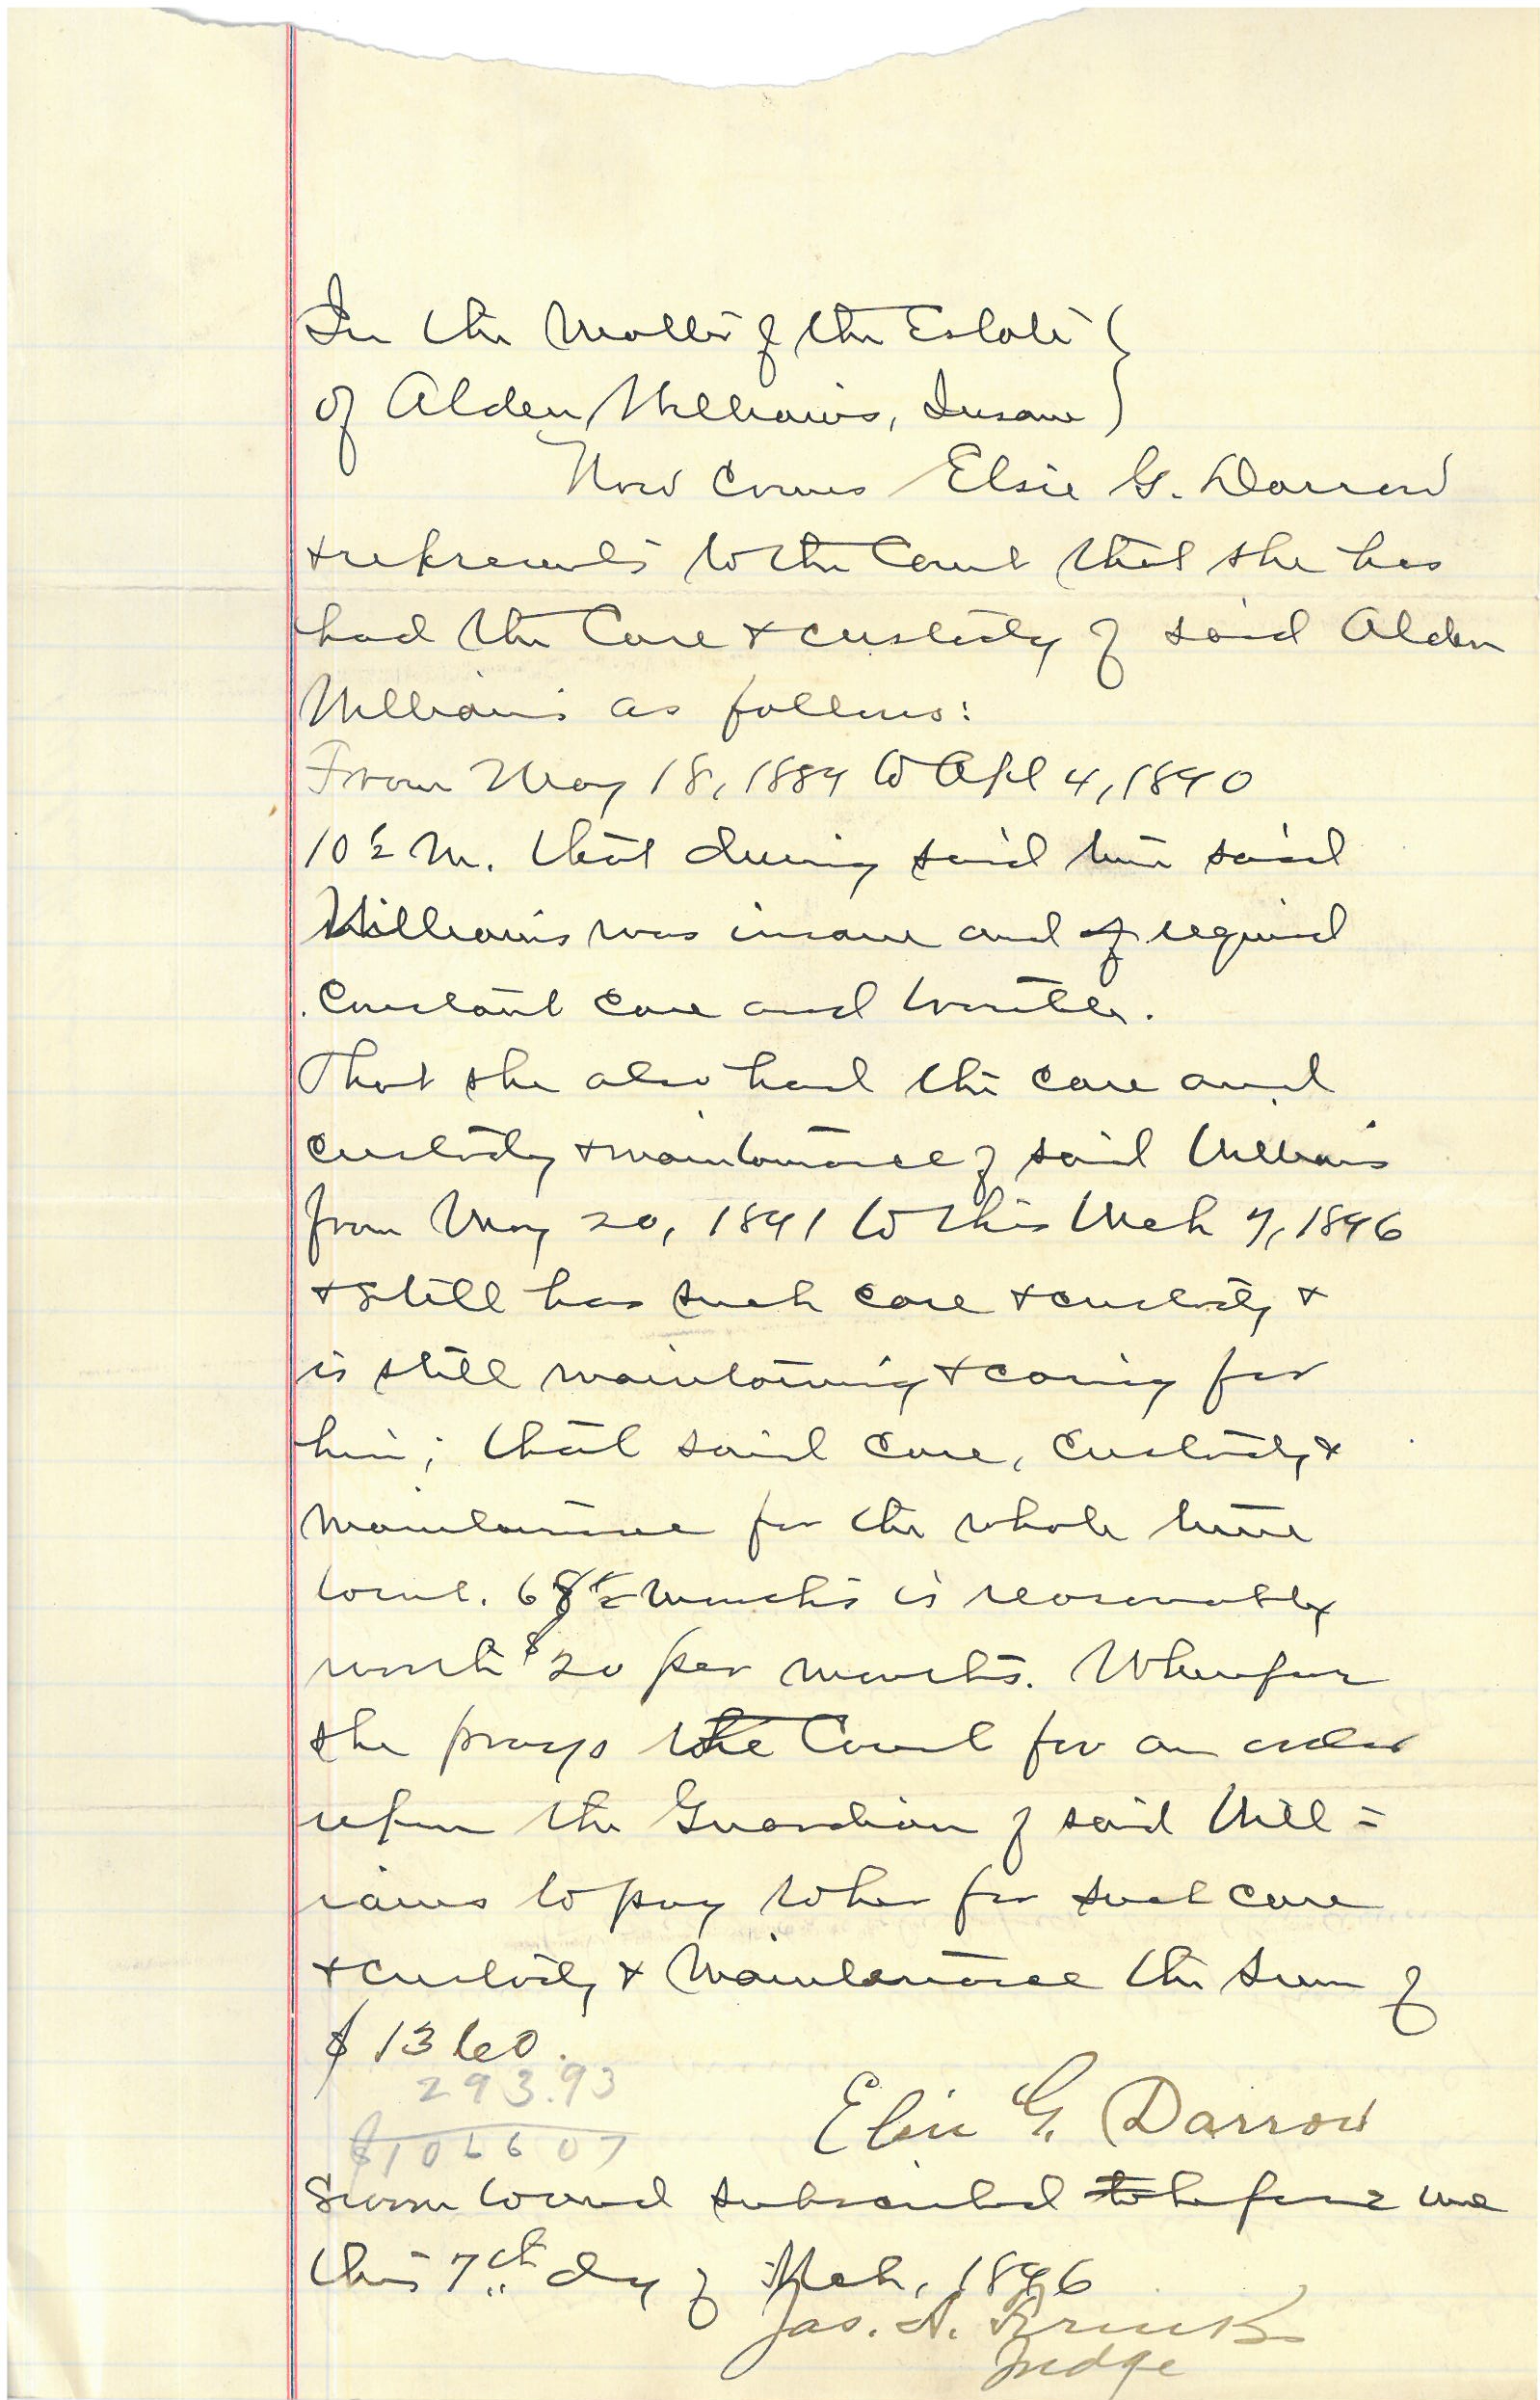 In the Matter of the Estate
of Alden Williams, Insane
Now comes Elsie G. Darrow
& represents to the Court that she has
had the Care & custody of said Alden
Williams as follows:
From May 18, 1889 to Apl 4, 1890
10½ m. that during said time said
Williams was insane and of required
constant care and trouble.
That she also had the care and
custody & maintenance of said Williams
from May 20, 1891 to this Mch 7, 1896
& still has such care & custody &
is still maintaining & caring for
him; that said care, custody &
maintenance for the whole time
68½ months is reasonably
worth $20 per month. Wherefore
she prays the Court for an order
upon the Guardian of said Will=
iams to pay to her for such care
& custody & maintenance the sum of
$1360.
293.93
$1066 07
Elsie G. Darrow
Sworn to and subscribed to before me
this 7th day of Mch, 1896
Jas. A.
Judge